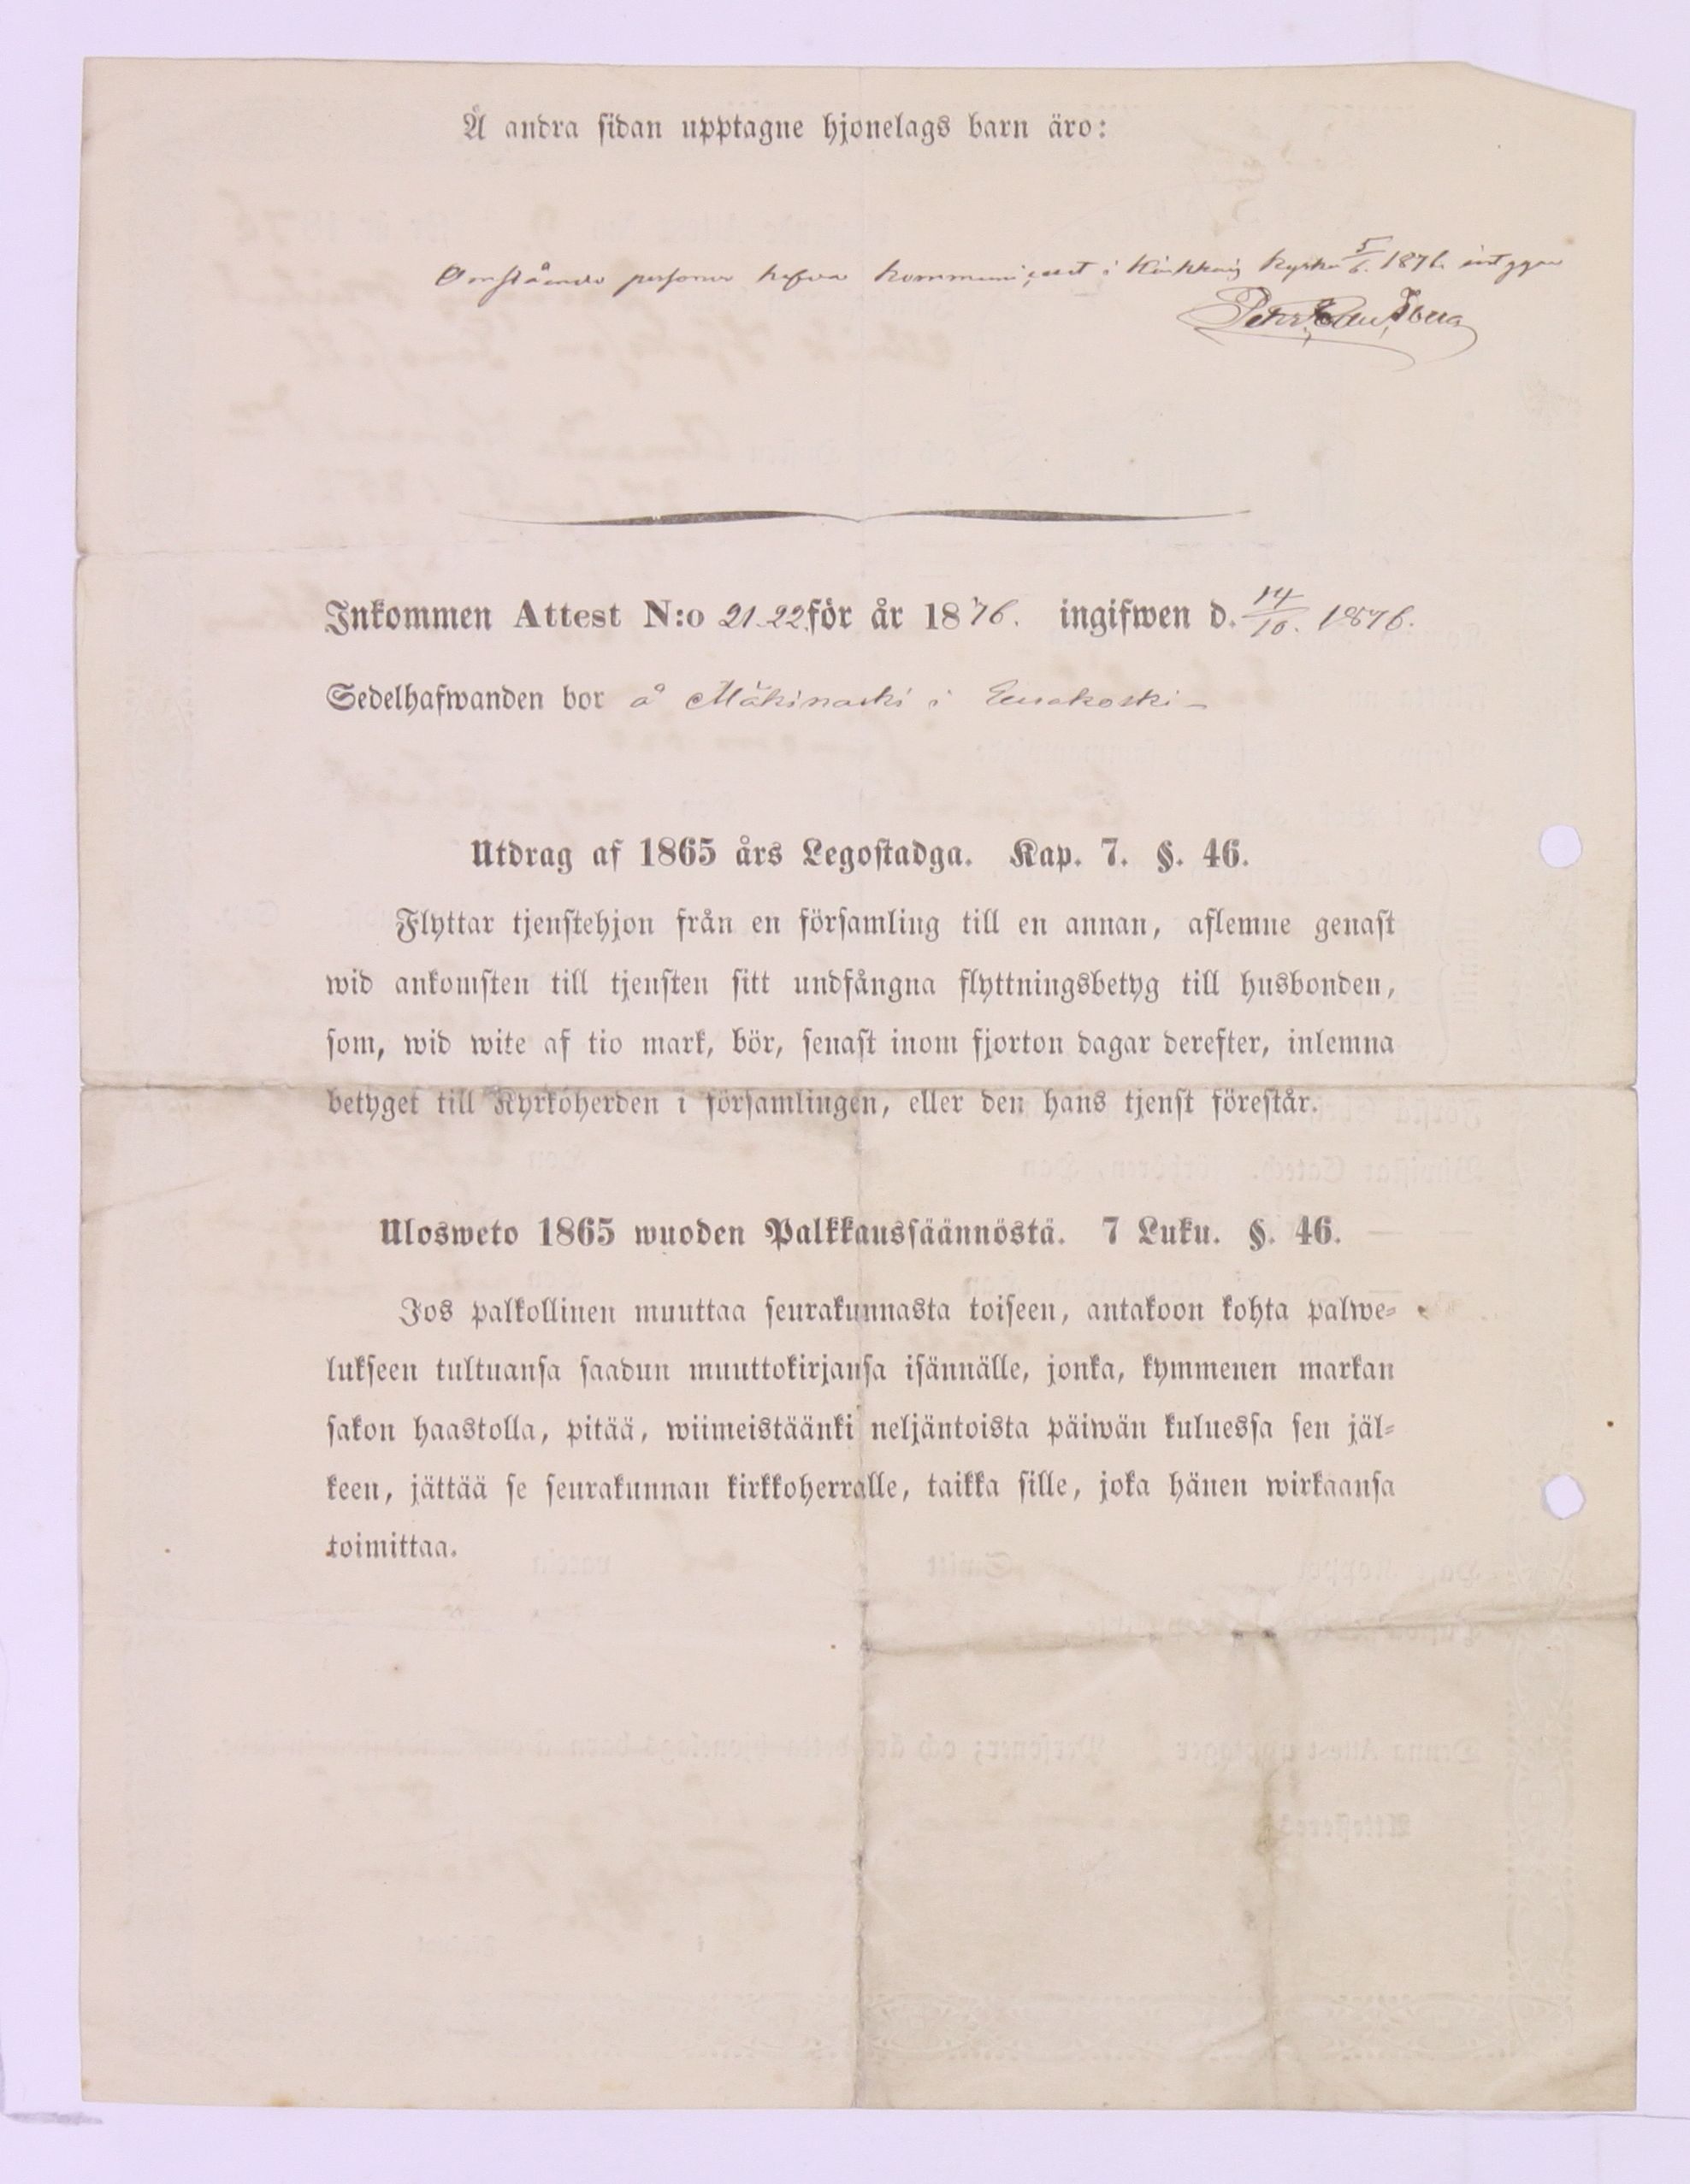 Å andra sidan upptagne hjonelags barn äro:
Omstående personer hafva kommunicerat i kyrka 5/6 1876 intygar
Inkommen Attest N:o 21.22 för år 1876. ingifwen d. 14/10. 1876.
Sedelhafwanden bor å i
Utdrag af 1865 års Legostadga. Kap. 7. §. 46.
Flyttar tjenstehjon från en församling till en annan, aflemne genast
wid ankomsten till tjensten sitt undfångna flyttningsbetyg till husbonden,
som, wid wite af tio mark, bör, senast inom fjorton dagar derefter, inlemna
betyget till Kyrkoherden i församlingen, eller den hans tjenst förestår.
Ulosweto 1865 wuoden Palkkaussäännöstä. 7 Luku. §. 46.
Jos palkollinen muuttaa seurakunnasta toiseen, antakoon kohta palwe-
lukseen tultuansa saadun muuttokirjansa isännälle, jonka, kymmenen markan
sakon haastolla, pitää, wiimeistäänki neljäntoista päiwän kuluessa sen jäl-
keen, jättää se seurakunnan kirkkoherralle, taikka sille, joka hänen wirkaansa
toimittaa.